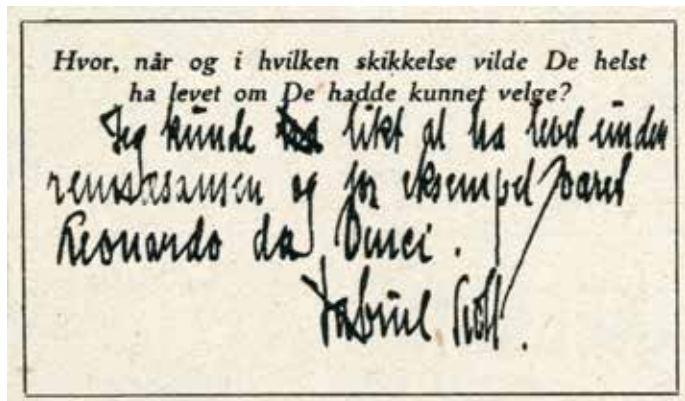 Hvor, når og i hvilken skikkelse vilde De helst
ha levet om De hadde kunnet velge?
Jeg kunde likt at ha levet under
renæssansen og for eksempel været
Leonardo da Vinci.
Gabriel